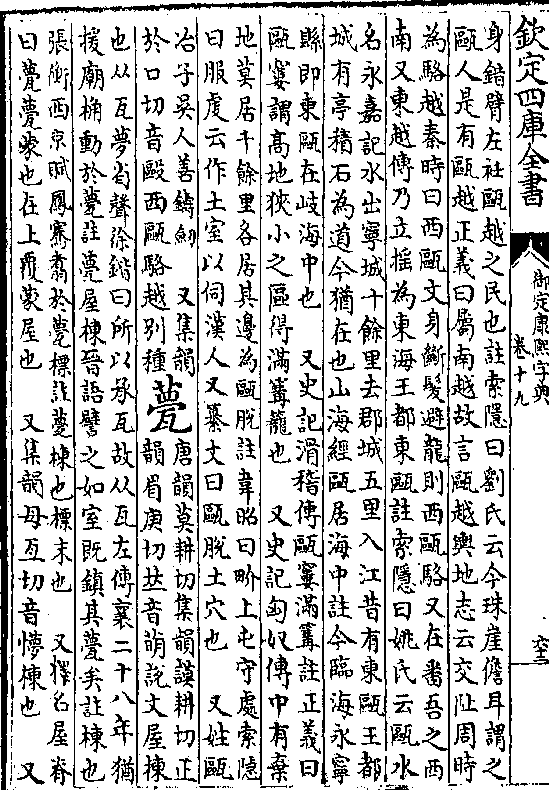 欽定四庫全書
御定康熙字典
卷十九
身錯臂左衽甌越之民也註索隱曰劉氏云今珠崖儋耳謂之
甌人是有甌越正義曰屬南越故言甌越輿地志云交阯周時
為駱越秦時曰西甌文身斷髮避龍則西甌駱又在番吾之西
南又東越傳乃立搖為東海王都東甌註索隱曰姚氏云甌水
名永嘉記水出寧城十餘里去郡城五里入江昔有東甌王都
城有亭積石為道今猶在也山海經甌居海中註今臨海永寧
縣即東甌在岐海中也 又史記滑稽傳甌窶滿篝註正義曰
甌窶謂高地狹小之區得滿篝籠也 又史記匈奴傳中有棄
地莫居千餘里各居其邊為甌脫註韋昭曰界上屯守處索隱
曰服虔云作土室以伺漢人又纂文曰甌脫土穴也 又姓甌
冶子吳人善鑄劒 又集韻
於口切音毆西甌駱越別種 甍 唐韻莫耕切集韻謨耕切正
韻眉庚切𠀤音萌說文屋棟
也从瓦夢省聲徐鍇曰所以承瓦故从瓦左傳襄二十八年猶
援廟桷動於甍註甍屋棟晉語譬之如室既鎮其甍矣註棟也
張衡西京賦鳳騫翥於甍標註甍棟也標末也 又釋名屋脊
曰甍甍蒙也在上覆蒙屋也 又集韻母亙切音懜棟也 又